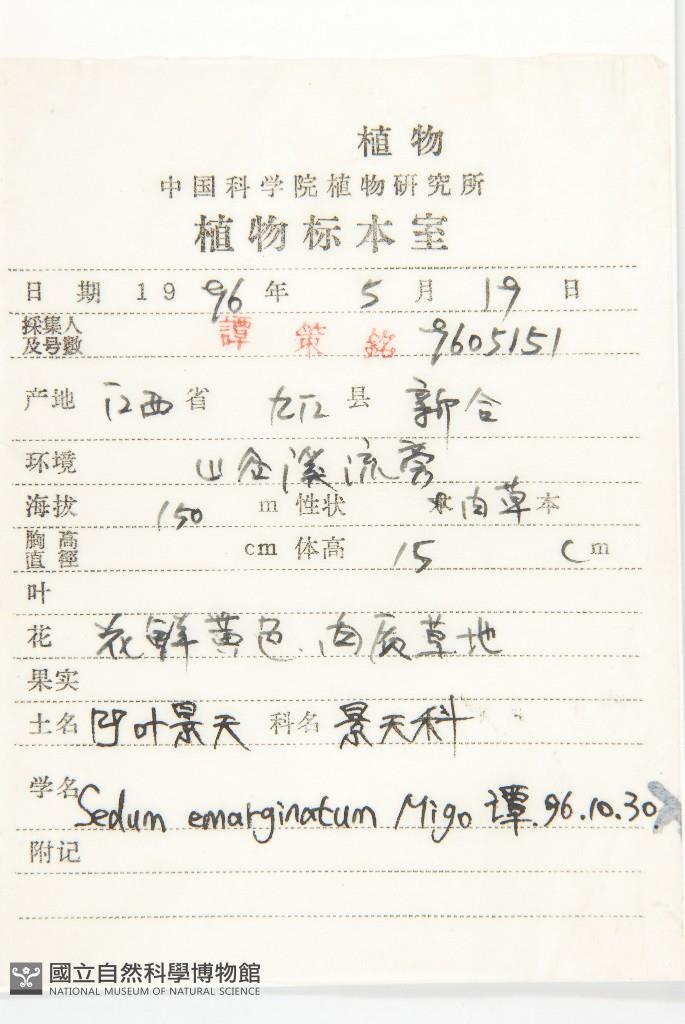 植物
中国科学院植物研究所
植物标本室
日期 1996年 5月 19日
採集人及号數 譚策銘 9605151
产地 江西省 九江县 新合
环境 山谷溪流旁
海拔 150 m 性状 肉草本
胸高直徑 cm 体高 15 cm
叶
花 花鲜黄色、肉质草地
果实
土名 凹叶景天 科名 景天科
学名 Sedum emarginatum Migo 譚. 96.10.30.
附记
國立自然科學博物館
NATIONAL MUSEUM OF NATURAL SCIENCE